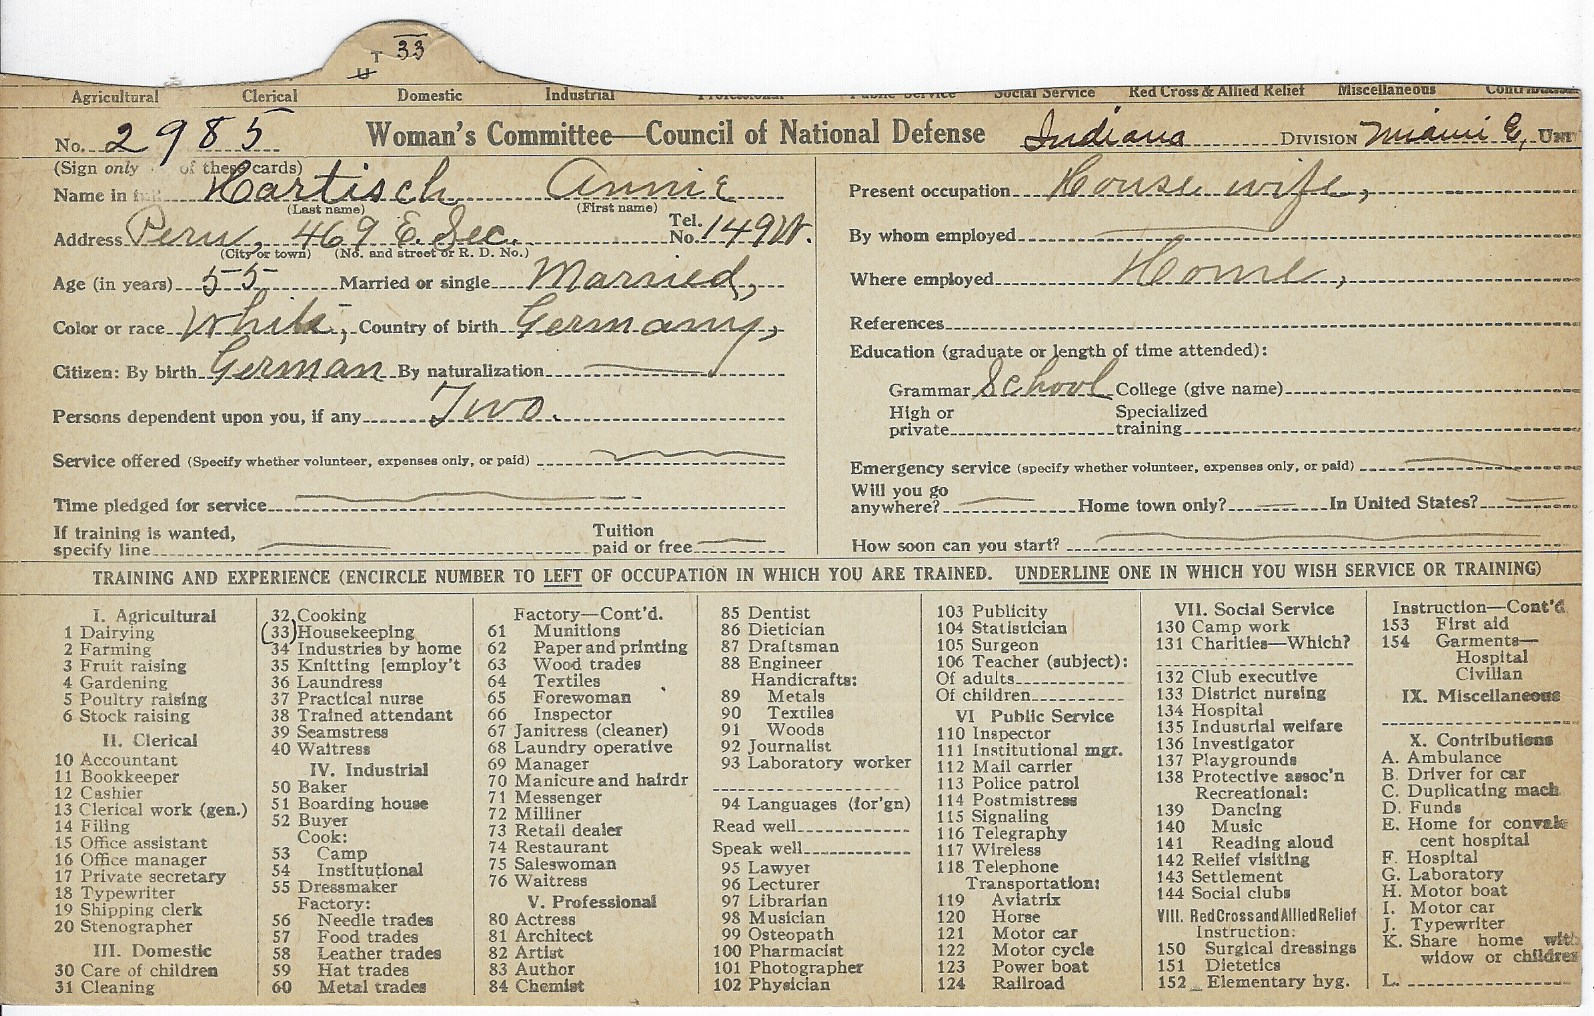 T 33
U
Agricultural Clerical Domestic Industrial Professional Public Service Social Service Red Cross & Allied Relief Miscellaneous Contributions
No. 2985 Woman's Committee—Council of National Defense Indiana DIVISION Miami Co, UNIT
(Sign only of these cards)
Name in full Hartisch Annie
(Last name) (First name)
Address Peru, 469 E. Sec. Tel. No. 149W.
(City or town) (No. and street or R. D. No.)
Age (in years) 55 Married or single Married,
Color or race White, Country of birth Germany,
Citizen: By birth German By naturalization
Persons dependent upon you, if any Two.
Service offered (Specify whether volunteer, expenses only, or paid)
Time pledged for service
If training is wanted, specify line Tuition paid or free
Present occupation House wife,
By whom employed
Where employed Home,
References
Education (graduate or length of time attended):
Grammar School College (give name)
High or private Specialized training
Emergency service (specify whether volunteer, expenses only, or paid)
Will you go anywhere? Home town only? In United States?
How soon can you start?
TRAINING AND EXPERIENCE (ENCIRCLE NUMBER TO LEFT OF OCCUPATION IN WHICH YOU ARE TRAINED. UNDERLINE ONE IN WHICH YOU WISH SERVICE OR TRAINING)
I. Agricultural
1 Dairying
2 Farming
3 Fruit raising
4 Gardening
5 Poultry raising
6 Stock raising
II. Clerical
10 Accountant
11 Bookkeeper
12 Cashier
13 Clerical work (gen.)
14 Filing
15 Office assistant
16 Office manager
17 Private secretary
18 Typewriter
19 Shipping clerk
20 Stenographer
III. Domestic
30 Care of children
31 Cleaning
32 Cooking
(33) Housekeeping
34 Industries by home
35 Knitting [employ't
36 Laundress
37 Practical nurse
38 Trained attendant
39 Seamstress
40 Waitress
IV. Industrial
50 Baker
51 Boarding house
52 Buyer
Cook:
53 Camp
54 Institutional
55 Dressmaker
Factory:
56 Needle trades
57 Food trades
58 Leather trades
59 Hat trades
60 Metal trades
Factory—Cont'd.
61 Munitions
62 Paper and printing
63 Wood trades
64 Textiles
65 Forewoman
66 Inspector
67 Janitress (cleaner)
68 Laundry operative
69 Manager
70 Manicure and hairdr
71 Messenger
72 Milliner
73 Retail dealer
74 Restaurant
75 Saleswoman
76 Waitress
V. Professional
80 Actress
81 Architect
82 Artist
83 Author
84 Chemist
85 Dentist
86 Dietician
87 Draftsman
88 Engineer
Handicrafts:
89 Metals
90 Textiles
91 Woods
92 Journalist
93 Laboratory worker
94 Languages (for'gn)
Read well
Speak well
95 Lawyer
96 Lecturer
97 Librarian
98 Musician
99 Osteopath
100 Pharmacist
101 Photographer
102 Physician
103 Publicity
104 Statistician
105 Surgeon
106 Teacher (subject):
Of adults
Of children
VI Public Service
110 Inspector
111 Institutional mgr.
112 Mail carrier
113 Police patrol
114 Postmistress
115 Signaling
116 Telegraphy
117 Wireless
118 Telephone
Transportation:
119 Aviatrix
120 Horse
121 Motor car
122 Motor cycle
123 Power boat
124 Railroad
VII. Social Service
130 Camp work
131 Charities—Which?
132 Club executive
133 District nursing
134 Hospital
135 Industrial welfare
136 Investigator
137 Playgrounds
138 Protective assoc'n
Recreational:
139 Dancing
140 Music
141 Reading aloud
142 Relief visiting
143 Settlement
144 Social clubs
VIII. Red Cross and Allied Relief
Instruction:
150 Surgical dressings
151 Dietetics
152 Elementary hyg.
Instruction—Cont'd
153 First aid
154 Garments—
Hospital
Civilian
IX. Miscellaneous
X. Contributions
A. Ambulance
B. Driver for car
C. Duplicating mach
D. Funds
E. Home for convales
cent hospital
F. Hospital
G. Laboratory
H. Motor boat
I. Motor car
J. Typewriter
K. Share home with
widow or children
L.